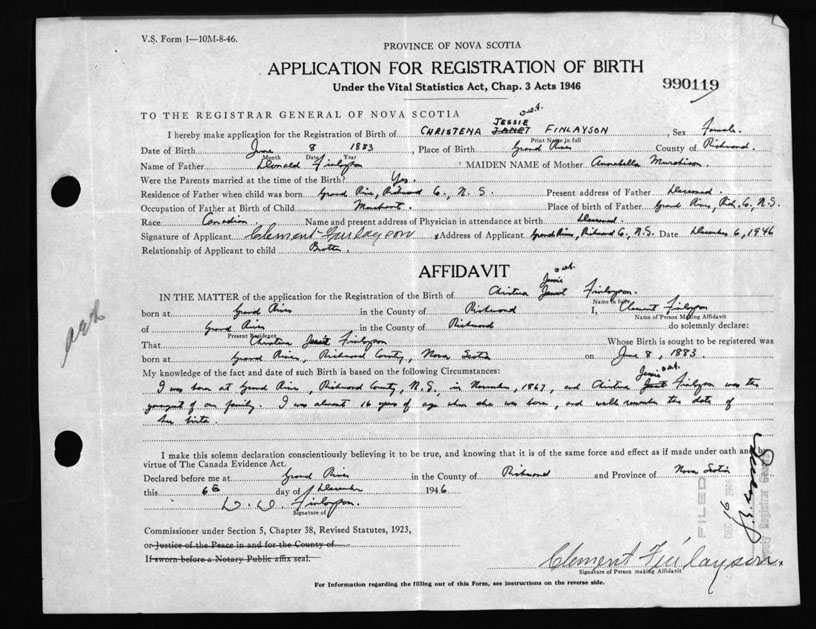 V.S. Form 1—10M-8-46.
PROVINCE OF NOVA SCOTIA
APPLICATION FOR REGISTRATION OF BIRTH
Under the Vital Statistics Act, Chap. 3 Acts 1946
990119
TO THE REGISTRAR GENERAL OF NOVA SCOTIA
I hereby make application for the Registration of Birth of CHRISTENA JANET JESSIE FINLAYSON, Sex Female.
Print Name in full
Date of Birth June 8 1883, Place of Birth Grand River County of Richmond.
Month Date Year
Name of Father Donald Finlayson MAIDEN NAME of Mother Annabella Murchison.
Were the Parents married at the time of the Birth? Yes.
Residence of Father when child was born Grand River, Richmond Co., N.S. Present address of Father Deceased.
Occupation of Father at Birth of Child Merchant. Place of birth of Father Grand River, Rich. Co., N.S.
Race Canadian. Name and present address of Physician in attendance at birth Deceased.
Signature of Applicant Clement Finlayson x Address of Applicant Grand River, Richmond Co., N.S. Date December 6, 1946
Relationship of Applicant to child Brother.
AFFIDAVIT
IN THE MATTER of the application for the Registration of Birth of Christena Janet Jessie Finlayson.
Name in full
born at Grand River in the County of Richmond I, Clement Finlayson
Name of Person Making Affidavit
of Grand River in the County of Richmond do solemnly declare:
Present Residence
That Christena Jessie Finlayson Whose Birth is sought to be registered was
born at Grand River, Richmond County, Nova Scotia on June 8, 1883.
My knowledge of the fact and date of such Birth is based on the following Circumstances:
I was born at Grand River, Richmond County, N.S., in November, 1867, and Christena Janet Jessie Finlayson was the
youngest of our family. I was almost 16 years of age when she was born, and well remember the date of
her birth.
I make this solemn declaration conscientiously believing it to be true, and knowing that it is of the same force and effect as if made under oath and by
virtue of The Canada Evidence Act.
Declared before me at Grand River in the County of Richmond and Province of Nova Scotia
this 6th day of December 1946
D. D. Finlayson.
Signature of
Commissioner under Section 5, Chapter 38, Revised Statutes, 1923,
or Justice of the Peace in and for the County of
If sworn before a Notary Public affix seal.
FILED
Clement Finlayson x
Signature of Person making Affidavit
For Information regarding the filling out of this Form, see instructions on the reverse side.